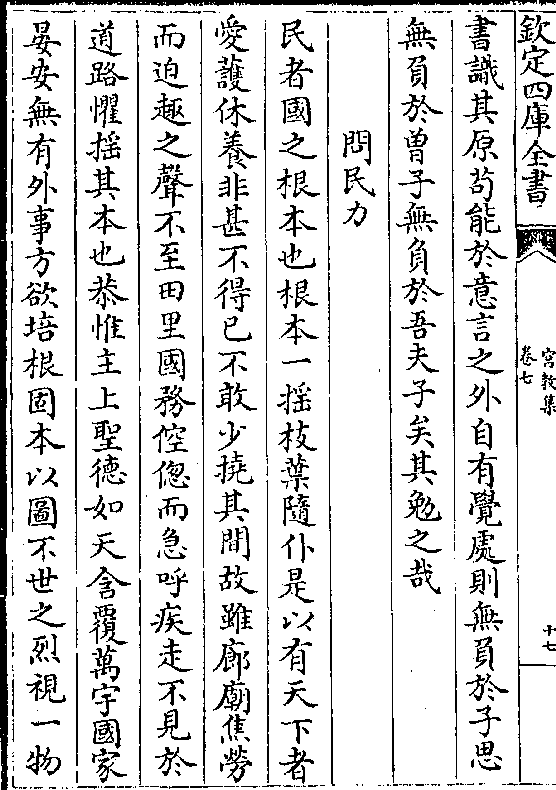 欽定四庫全書
宮教集
卷七
十七
書識其原苟能於意言之外自有覺處則無負於子思
無負於曾子無負於吾夫子矣其勉之哉
問民力
民者國之根本也根本一揺枝葉隨仆是以有天下者
愛䕶休養非甚不得已不敢少撓其間故雖廊廟焦勞
而迫趣之聲不至田里國務倥偬而急呼疾走不見於
道路懼揺其本也恭惟主上聖德如天含覆萬宇國家
晏安無有外事方欲培根固本以圖不世之烈視一物